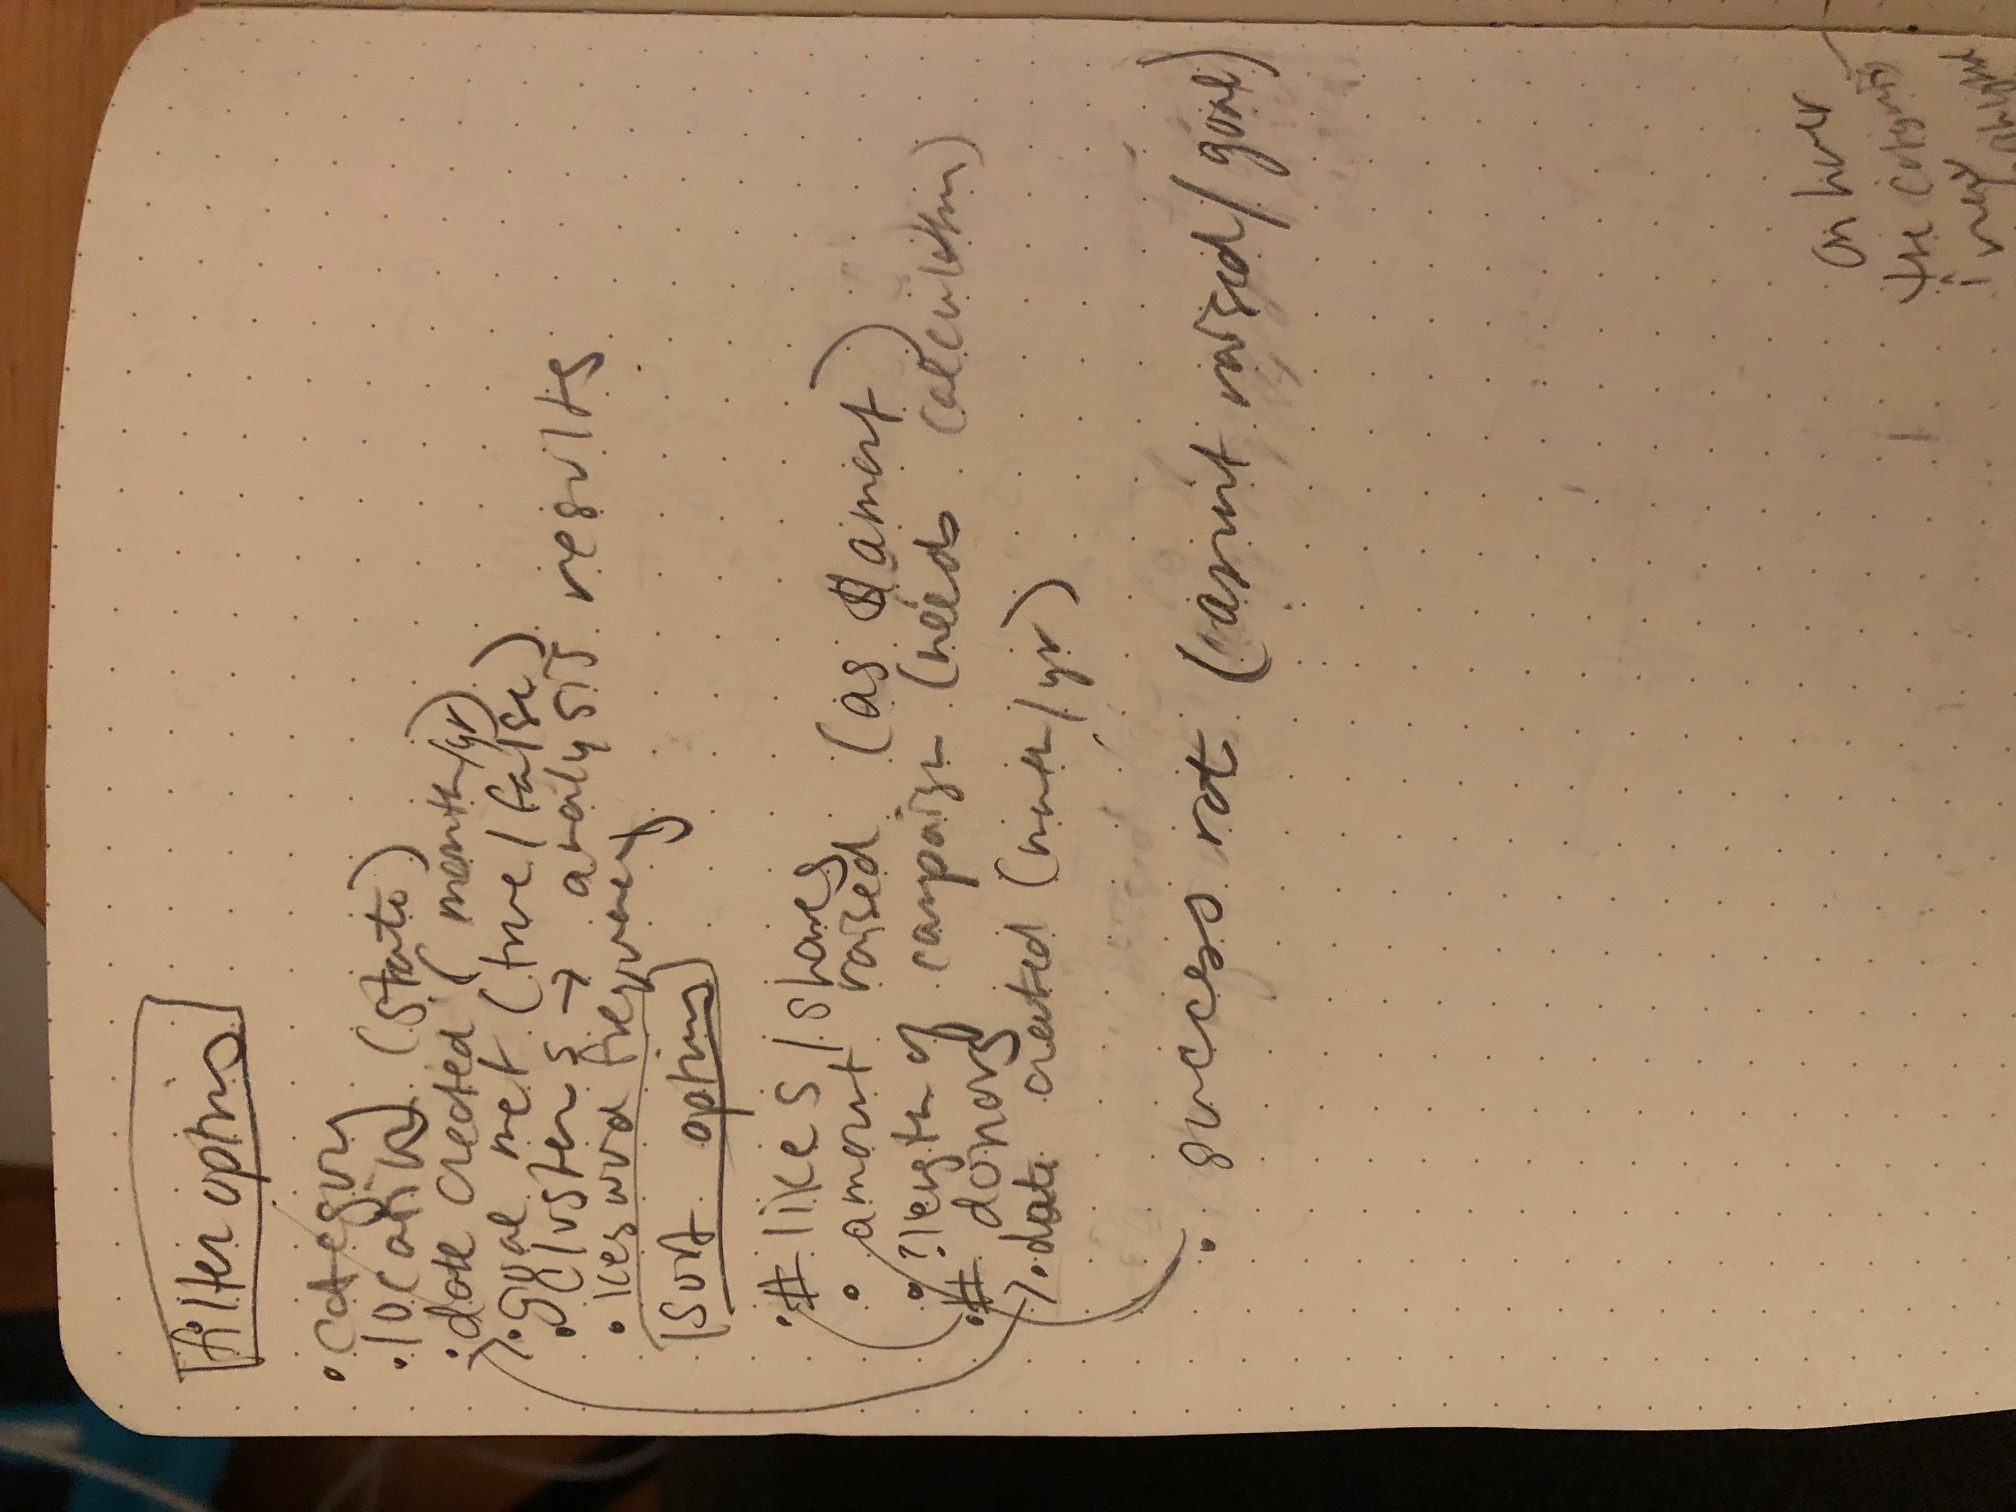 filter options
• category
• location (state)
• date created (month/yr)
• goal met (true/false)
• clusters → analysis results
• keyword frequency
Sort options
• # likes/shares
• amount raised (as $ amount)
• ? length of campaign (needs calculation)
• # donors
• date created (month/yr)
• success rate (amount raised/goal)
On hover
the categories